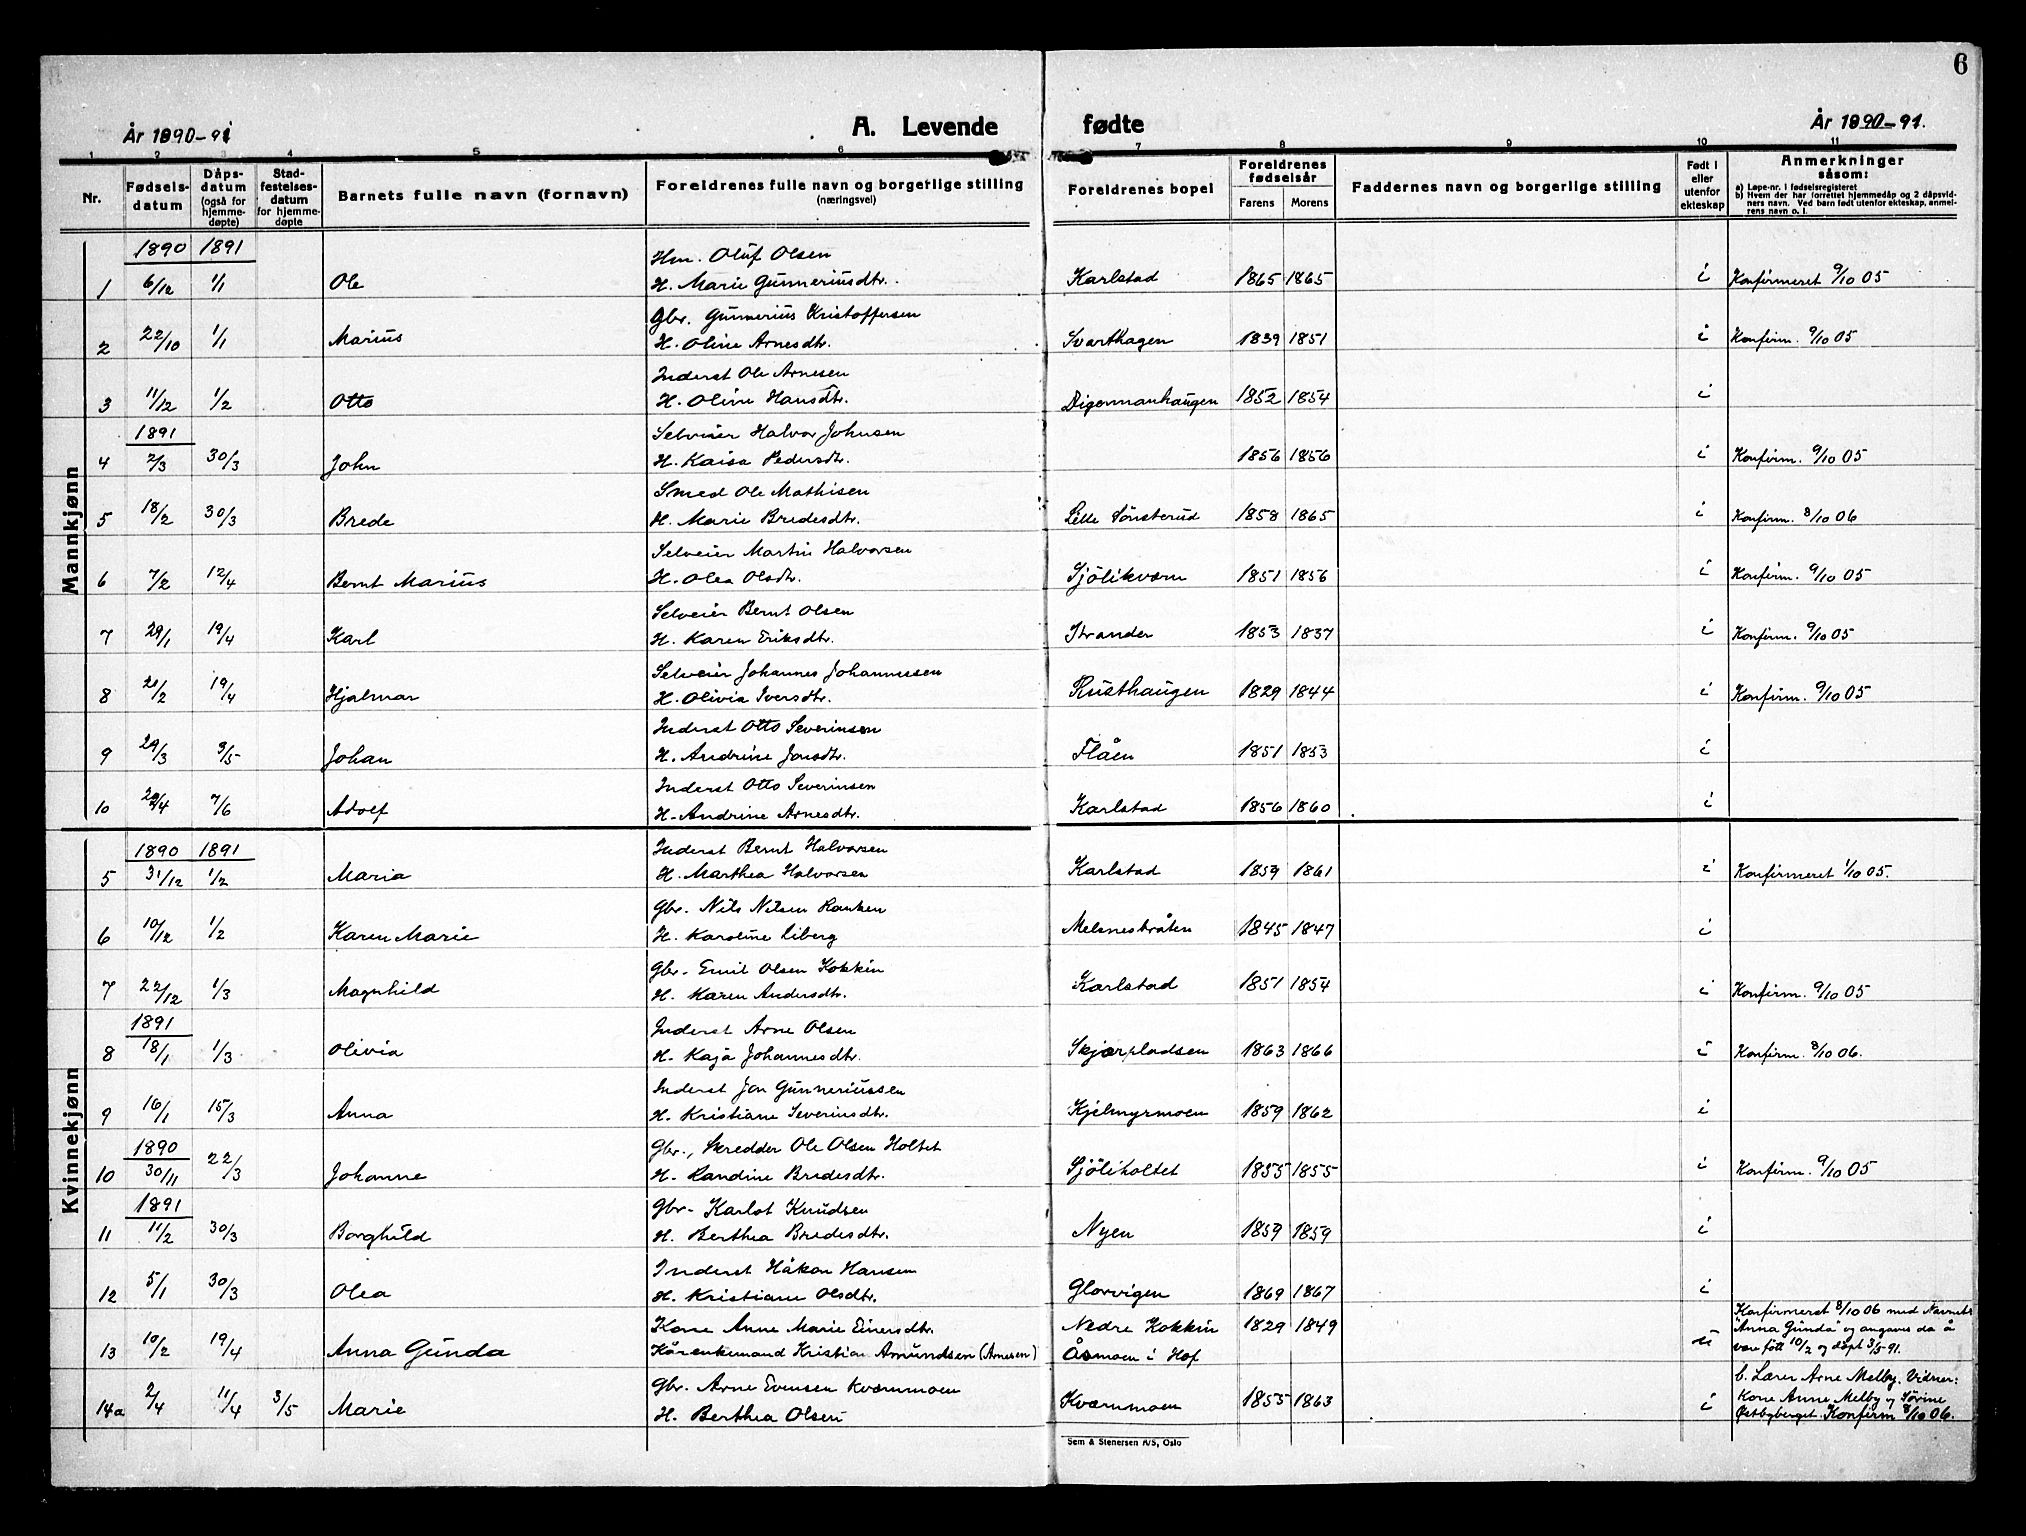 6
År 1890-91
A. Levende fødte
År 1890-91.
1 2 3 4 5 6 7 8 9 10 11
Nr. Fødsels-datum Dåps-datum (også for hjemme-døpte) Stad-festelses-datum for hjemme-døpte Barnets fulle navn (fornavn) Foreldrenes fulle navn og borgerlige stilling (næringsvei) Foreldrenes bopel Foreldrenes fødselsår Farens Morens Faddernes navn og borgerlige stilling Født i eller utenfor ekteskap Anmerkninger såsom:
a) Løpe-nr. i fødselsregisteret
b) Hvem der har forrettet hjemmedåp og 2 dåpsvid-
ners navn. Ved barn født utenfor ekteskap, anmel-
rens navn o. l.
Mannkjønn
1890 1891 Hm. Oluf Olsen
1 6/12 1/1 Ole H. Marie Gunneriusdtr. Karlstad 1865 1865 i Konfirmeret 9/10 05
Gbr. Gunnerius Kristoffersen
2 22/10 1/1 Marius H. Oline Arnesdtr. Svarthagen 1839 1851 i Konfirm. 9/10 05
Inderst Ole Arnesen
3 11/12 1/2 Otto H. Oline Hansdtr. Digermanhaugen 1852 1854 i
1891 Selveier Halvor Johnsen
4 2/3 30/3 John H. Kaisa Pedersdtr. 1856 1856 i Konfirm. 9/10 05
Smed Ole Mathisen
5 18/2 30/3 Brede H. Marie Bredesdtr. Lille Sønsterud 1858 1865 i Konfirm. 8/10 06
Selveier Martin Halvorsen
6 7/2 12/4 Bernt Marius H. Olea Olsdtr. Sjölikværn 1851 1856 i Konfirm. 9/10 05
Selveier Bernt Olsen
7 29/1 19/4 Karl H. Karen Eriksdtr. Strander 1853 1837 i Konfirm. 9/10 05
Selveier Johannes Johannessen
8 21/2 19/4 Hjalmar H. Olivia Iversdtr. Rusthaugen 1829 1844 i Konfirm. 9/10 05
Inderst Otto Severinsen
9 29/3 3/5 Johan H. Andrine Jonsdtr. Flåen 1851 1853 i
Inderst Otto Severinsen
10 /4 7/6 Adolf H. Andrine Arnesdtr. Karlstad 1856 1860 i
Kvinnekjønn
1890 1891 Inderst Bernt Halvorsen
5 31/12 1/2 Maria H. Marthea Halvorsen Karlstad 1859 1861 i Konfirmeret 1/10 05.
Gbr. Nils Nilsen Ranken
6 10/12 1/2 Karen Marie H. Karoline Liberg Melsnesbråten 1845 1847 i
Gbr. Emil Olsen Kokkin
7 22/12 1/3 Magnhild H. Karen Andersdtr. Karlstad 1851 1854 i Konfirm. 9/10 05
1891 Inderst Arne Olsen
8 18/1 1/3 Olivia H. Kaja Johannesdtr. Skjærpladsen 1863 1866 i Konfirm. 8/10 06.
Inderst Jon Gunneriussen
9 16/1 15/3 Anna H. Kristiane Severinsdtr. Kjelmyrmoen 1859 1862 i
1890 Gbr., Skredder Ole Olsen Holtet
10 30/11 22/3 Johanne H. Randine Bredesdtr. Sjöliholtet 1855 1855 i Konfirm. 9/10 05
1891 Gbr. Karlot Knudsen
11 11/2 30/3 Borghild H. Berthea Bredesdtr. Nyen 1859 1859 i
Inderst Håkon Hansen
12 5/1 30/3 Olea H. Kristiane Olsdtr. Glorvigen 1869 1867 i
Kone Anne Marie Einersdtr. Nedre Kokkin 1829 1849 Konfirmeret 8/10 06 med Navnet
13 10/2 19/4 Anna Gunda Kårenkemand Kristian Amundsen (Arnesen) Åsmoen i Hof u "Anna Gunda" og angaves da å
være født 10/2 og døpt 3/5 91.
Gbr. Arne Evensen Kværnmoen b. Lærer Arne Melby. Vidner:
14a 2/4 11/4 3/5 Marie H. Berthea Olsen Kværnmoen 1855 1863 i Kone Anne Melby og Sørine
Østbyberget. Konfirm 8/10 06.
Sem & Stenersen A/S, Oslo